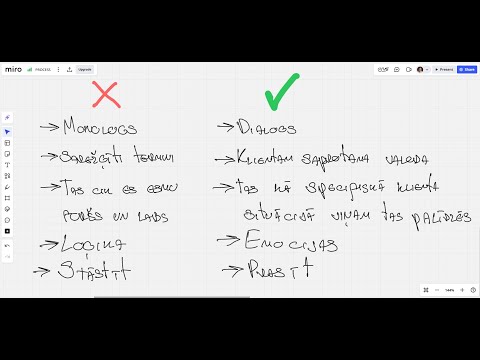 miro
PROCESS
Upgrade
Present
Share
→ MONOLOGS
→ SAREŽĢĪTI TERMINI
→ TAS CIK ES ESMU
FORŠS UN LABS
→ LOĢIKA
→ STĀSTĪT
→ DIALOGS
→ KLIENTAM SAPROTAMA VALODA
→ TAS KĀ SPECIFISKĀ KLIENTA
SITUĀCIJĀ VIŅAM TAS PALĪDZĒS
→ EMOCIJAS
→ PRASĪT
144%